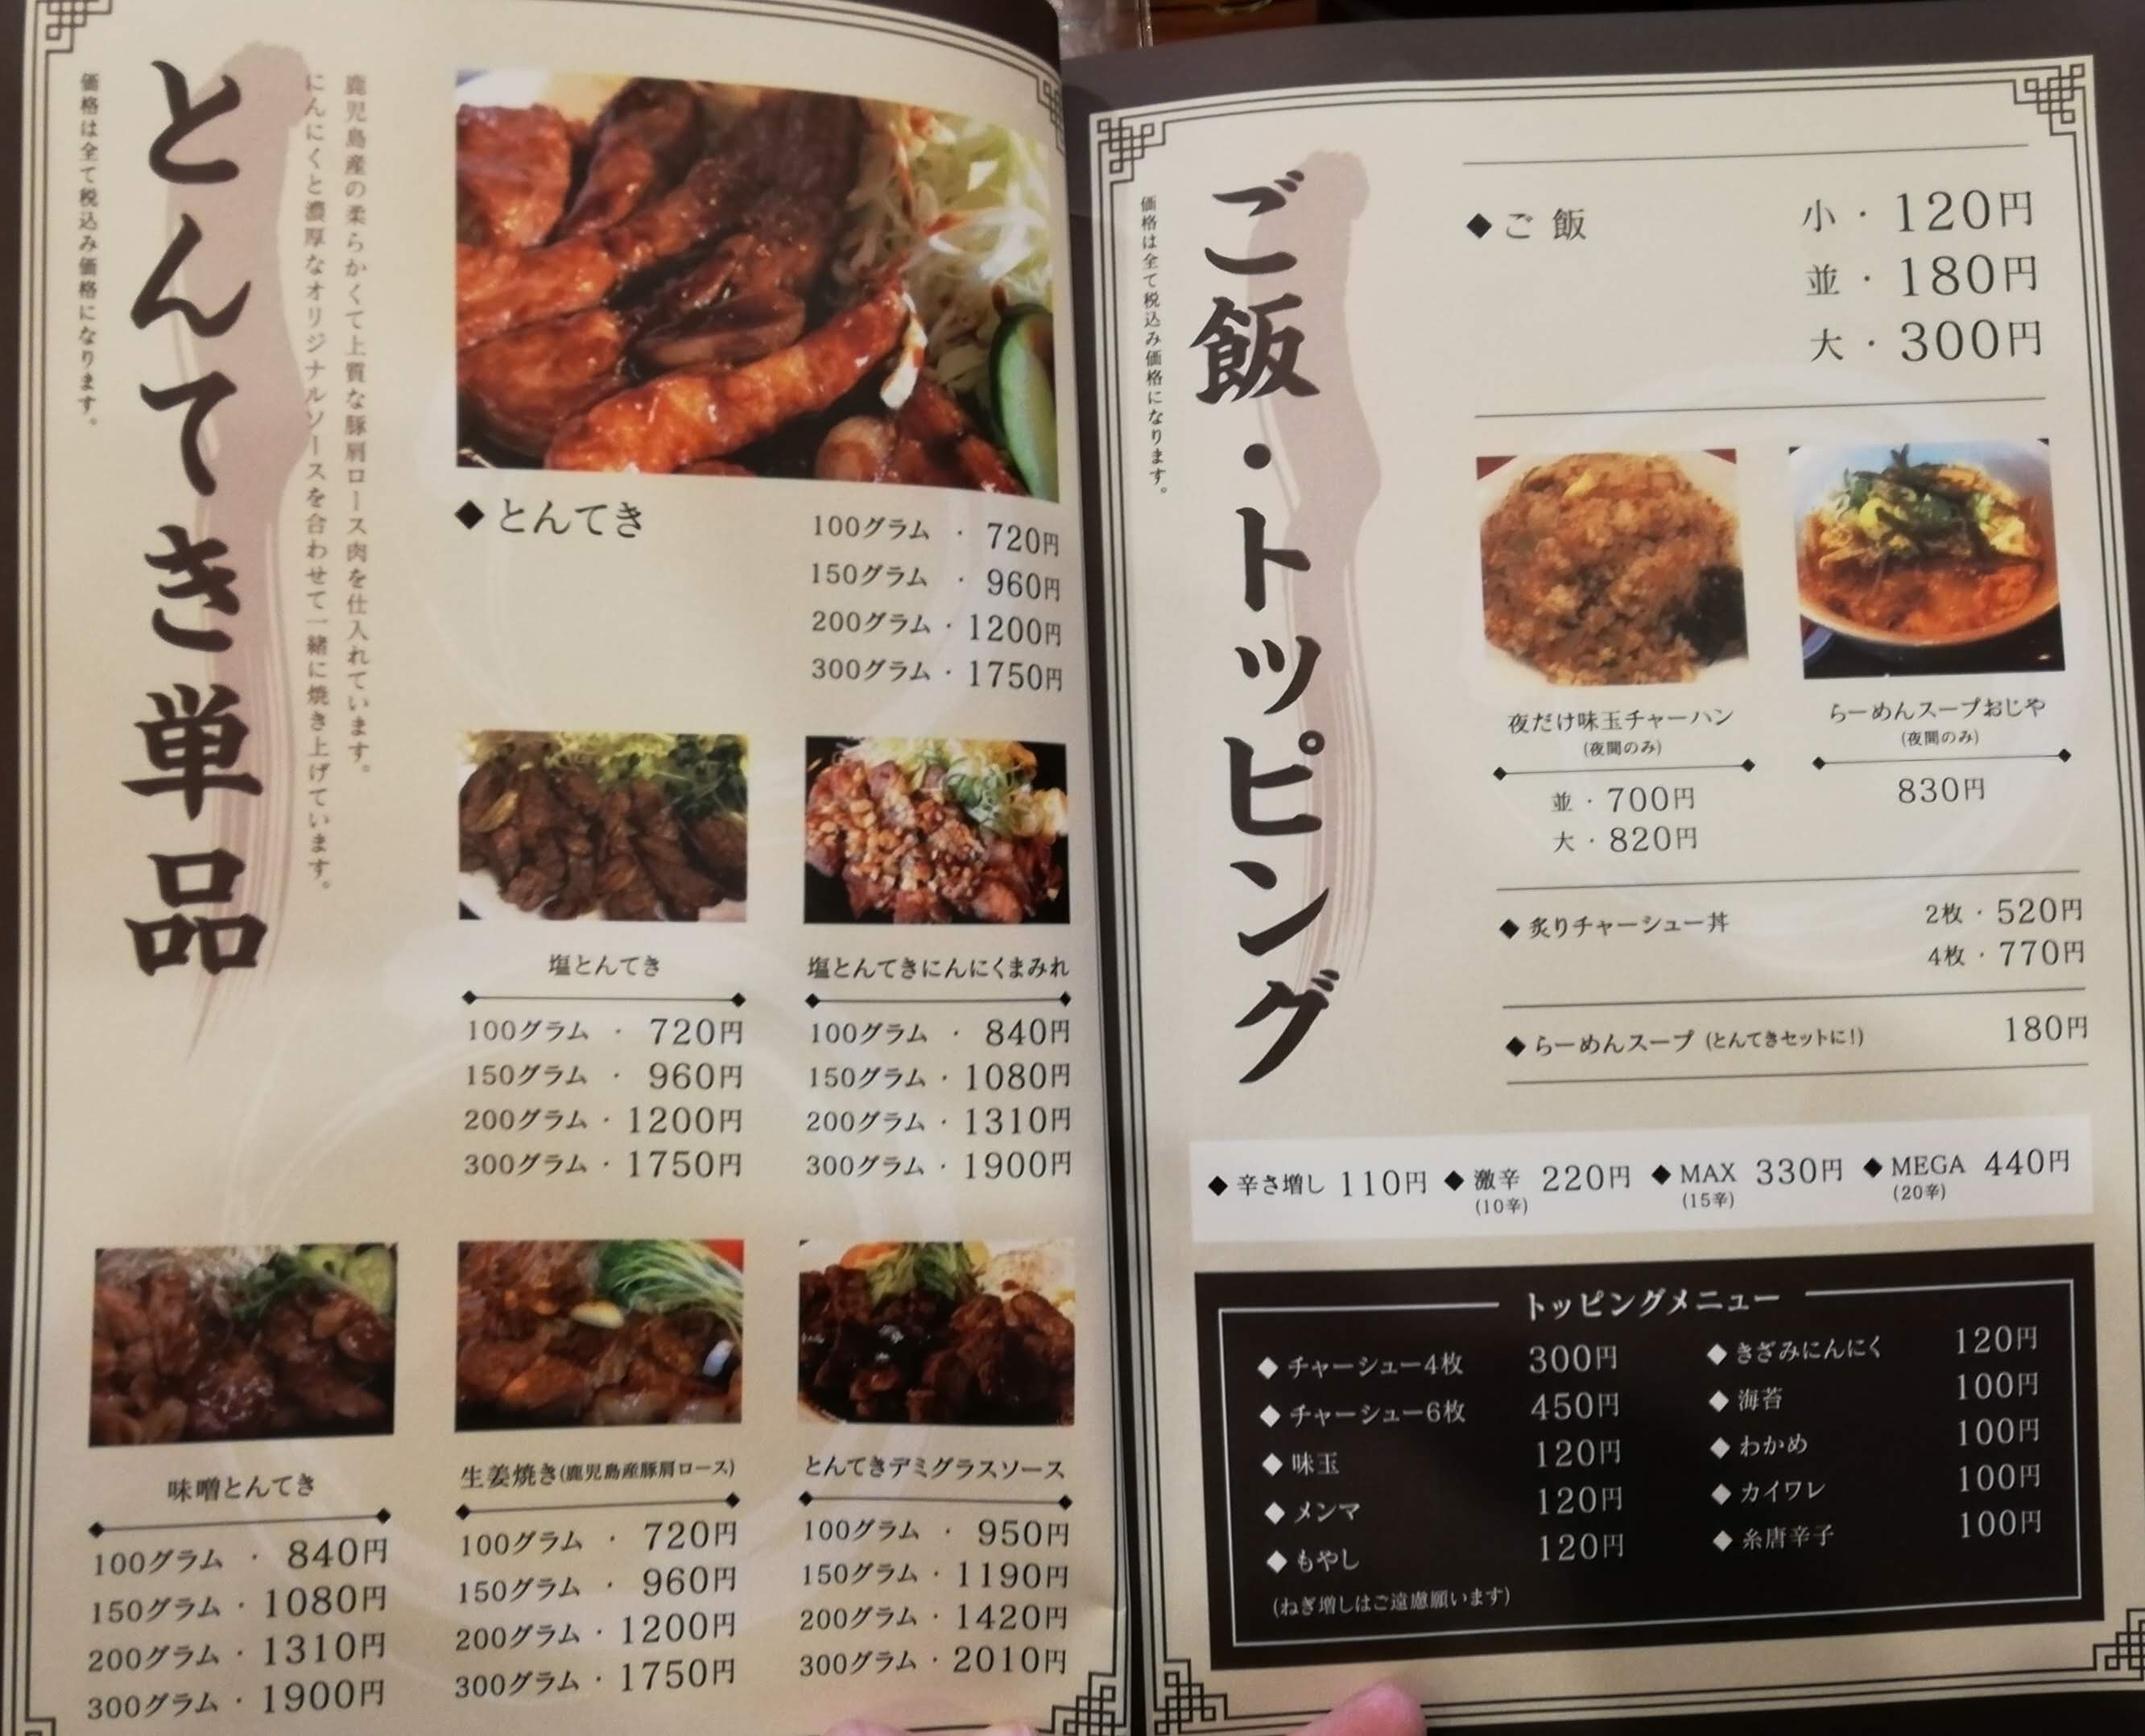 とんてき単品
鹿児島産の柔らかくて上質な豚肩ロース肉を仕入れています。
にんにくと濃厚なオリジナルソースを合わせて一緒に焼き上げています。
価格は全て税込み価格になります。
◆とんてき
100グラム・720円
150グラム・960円
200グラム・1200円
300グラム・1750円
塩とんてき
100グラム・720円
150グラム・960円
200グラム・1200円
300グラム・1750円
塩とんてきにんにくまみれ
100グラム・840円
150グラム・1080円
200グラム・1310円
300グラム・1900円
味噌とんてき
100グラム・840円
150グラム・1080円
200グラム・1310円
300グラム・1900円
生姜焼き(鹿児島産豚肩ロース)
100グラム・720円
150グラム・960円
200グラム・1200円
300グラム・1750円
とんてきデミグラスソース
100グラム・950円
150グラム・1190円
200グラム・1420円
300グラム・2010円
ご飯・トッピング
価格は全て税込み価格になります。
◆ご飯 小・120円
並・180円
大・300円
夜だけ味玉チャーハン
(夜間のみ)
並・700円
大・820円
らーめんスープおじや
(夜間のみ)
830円
◆炙りチャーシュー丼 2枚・520円
4枚・770円
◆らーめんスープ (とんてきセットに!) 180円
◆辛さ増し 110円 ◆激辛 220円 ◆MAX 330円 ◆MEGA 440円
(10辛) (15辛) (20辛)
トッピングメニュー
◆チャーシュー4枚 300円
◆チャーシュー6枚 450円
◆味玉 120円
◆メンマ 120円
◆もやし 120円
(ねぎ増しはご遠慮願います)
◆きざみにんにく 120円
◆海苔 100円
◆わかめ 100円
◆カイワレ 100円
◆糸唐辛子 100円